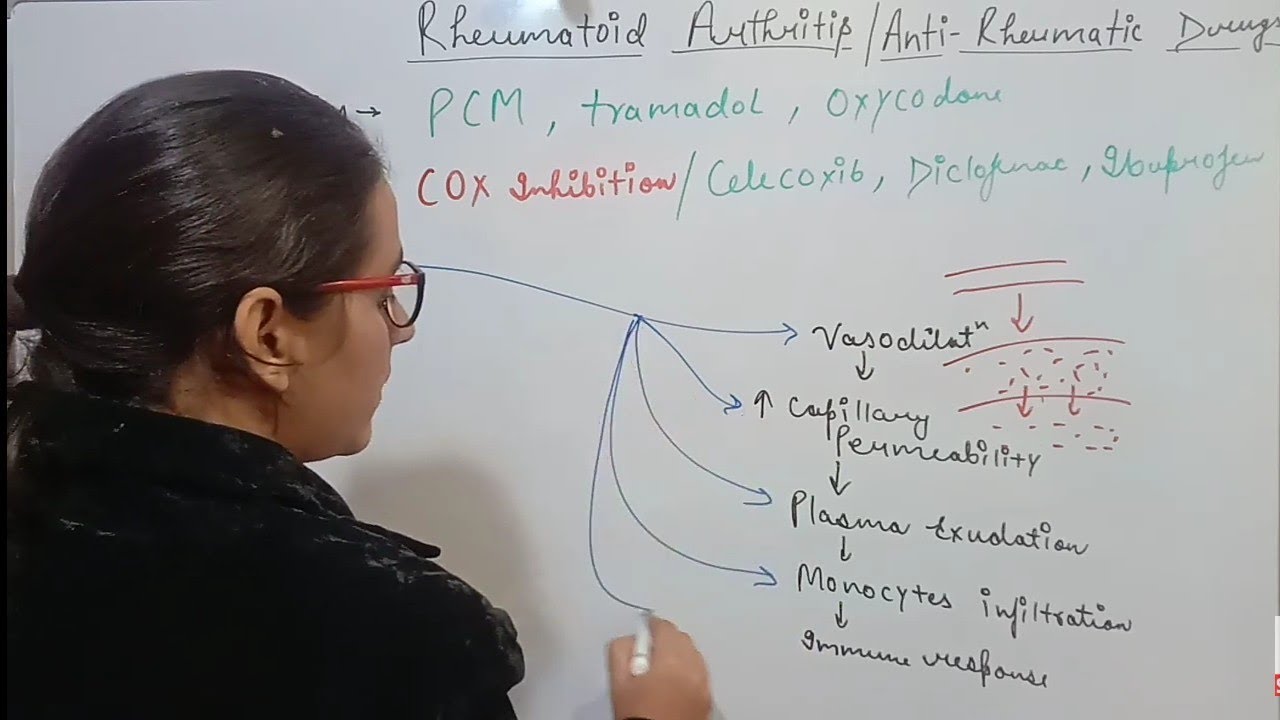 Rheumatoid Arthritis/Anti-Rheumatic Drugs
→ PCM, tramadol, Oxycodone
COX Inhibition/Celecoxib, Diclofenac, Ibuprofen
Vasodilatⁿ
↓
↑ Capillary
Permeability
↓
Plasma Exudation
↓
Monocytes infiltration
↓
Immune response